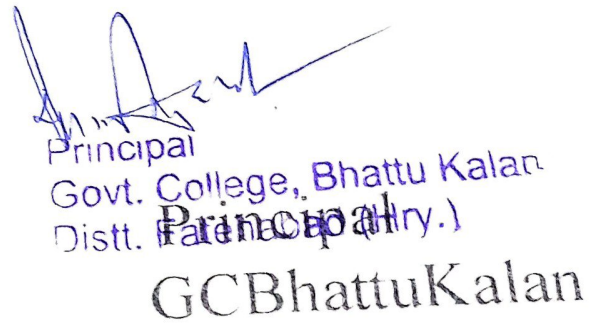 Principal
Govt. College, Bhattu Kalan
Distt. Fatehabad (Hry.)
Principal
GCBhattuKalan